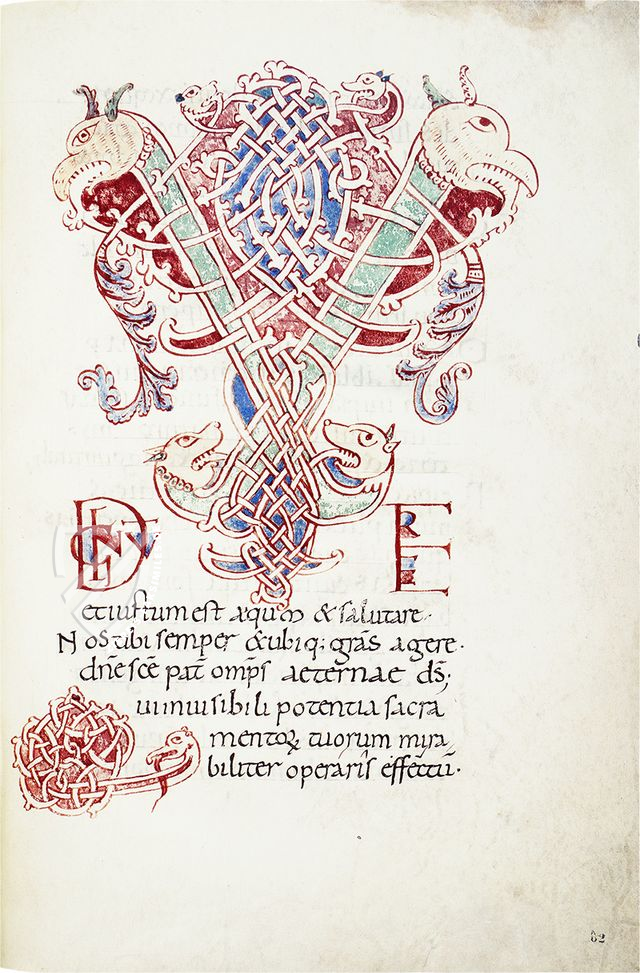 V ERE DIGNV
et iustum est aequm & salutare.
Nos tibi semper & ubiq; grās agere.
dn̄e sc̄e pat̄ omp̄s aeternae ds̄;
Qui inuisibili potentia sacra
mentoꝝ tuorum mira
biliter operaris effectū.